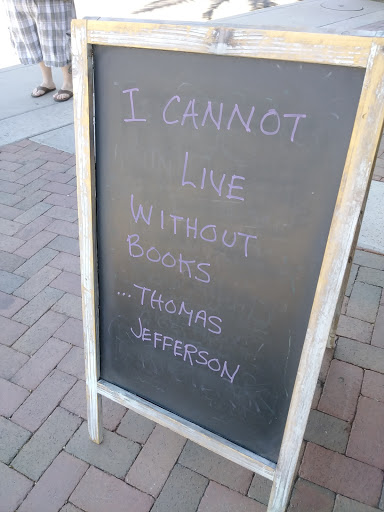 I CANNOT
LIVE
WITHOUT
BOOKS
...THOMAS
JEFFERSON